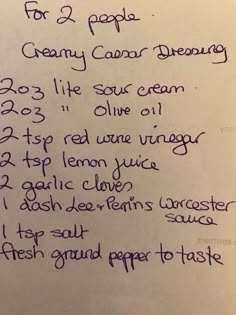 For 2 people.
Creamy Caesar Dressing
2oz lite sour cream.
2oz " olive oil
2 tsp red wine vinegar
2 tsp lemon juice
2 garlic cloves
1 dash Lee & Perrins Worcester
sauce
1 tsp salt
Fresh ground pepper to taste